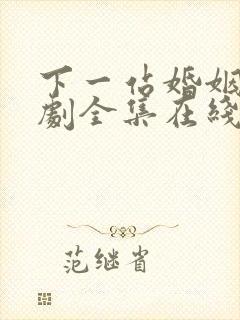 下一站婚姻
劇全集在綫
范继省